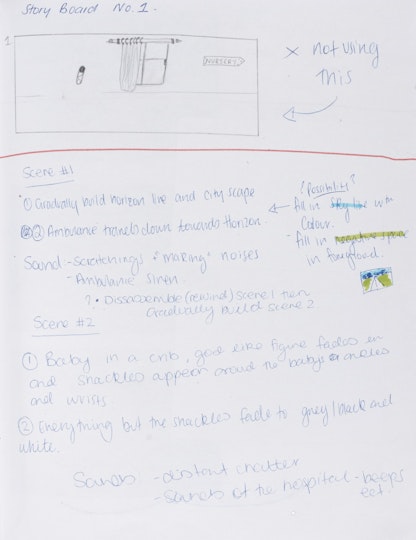 Story Board No. 1.
1
NURSERY
x not using
this
Scene #1
① Gradually build horizon line and city scape
② Ambulance travels down towards horizon.
Sound - Scratchings "making" noises
- Ambulance siren.
? • Dissasemble (rewind) scene 1 then
Gradually build scene 2
? Possibility ?
- fill in skyline with
Colour.
- fill in negative space
in foreground.
Scene #2
① Baby in a crib, like figure fades in
and shackles appear around the babys ankles
and wrists.
② Everything but the shackles fade to grey/black and
white.
Sounds - distant chatter
- Sounds of the hospital - beeps
ect.